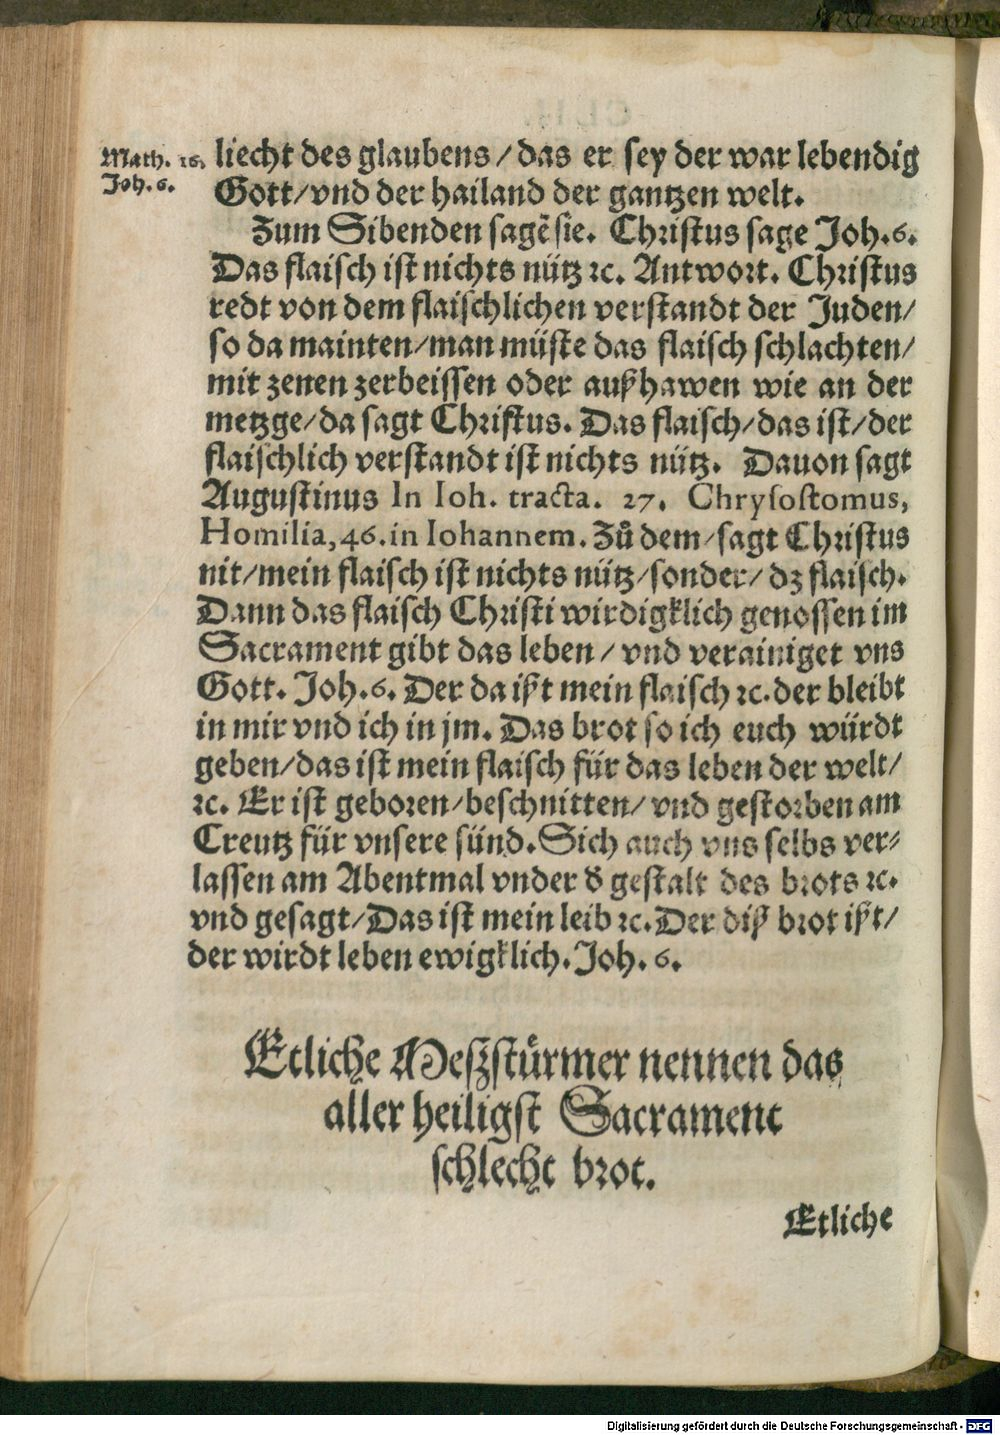 Math. 16.
Joh. 6.
liecht des glaubens / das er sey der war lebendig
Gott/vnd der hailand der gantzen welt.
Zum Sibenden sagẽ sie. Christus sage Joh.6.
Das flaisch ist nichts nütz ꝛc. Antwort. Christus
redt von dem flaischlichen verstandt der Juden/
so da mainten/man müste das flaisch schlachten/
mit zenen zerbeissen oder außhawen wie an der
metzge/da sagt Christus. Das flaisch/das ist/der
flaischlich verstandt ist nichts nütz. Dauon sagt
Augustinus In Ioh. tracta. 27. Chrysostomus,
Homilia, 46. in Iohannem. Zů dem/sagt Christus
nit/mein flaisch ist nichts nütz/sonder/ dz flaisch.
Dann das flaisch Christi wirdigklich genossen im
Sacrament gibt das leben / vnd verainiget vns
Gott. Joh.6. Der da ißt mein flaisch ꝛc. der bleibt
in mir vnd ich in jm. Das brot so ich euch würdt
geben/das ist mein flaisch für das leben der welt/
ꝛc. Er ist geboren/beschnitten/ vnd gestorben am
Creutz für vnsere sünd. Sich auch vns selbs ver-
lassen am Abentmal vnder d̕ gestalt des brots ꝛc.
vnd gesagt/Das ist mein leib ꝛc. Der diß brot ißt/
der wirdt leben ewigklich. Joh. 6.
Etliche Meßstürmer nennen das
aller heiligst Sacrament
schlecht brot.
Etliche
Digitalisierung gefördert durch die Deutsche Forschungsgemeinschaft - DFG